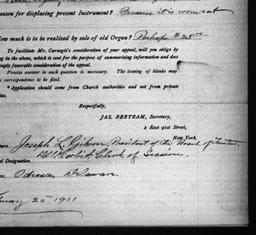 eason for displacing present Instrument? Because it is worn out
ow much is to be realized by sale of old Organ? Perhaps $25.00
To facilitate Mr. Carnegie's consideration of your appeal, will you oblige by
ing in the above, which is used for the purpose of summarising information and
mply favorable consideration of the appeal.
Precise answer to each question is necessary. The leaving of blanks may
correspondence to be filed.
* Application should come from Church authorities and not from private
Respectfully,
JAS. BERTRAM, Secretary,
2 East 91st Street,
New York.
Joseph L. Gibson, President of the Board of Trustees
Clerk of Session
al Designation.
Odessa Delaware
ruary 20th 1911